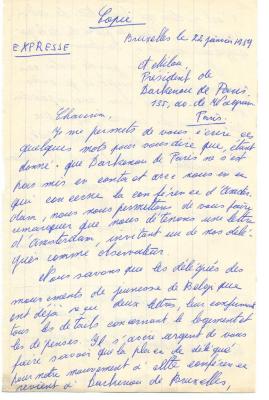 Copie
Bruxelles le 22 janvier 1959
EXPRESSE
Président de
Darkenou de Paris.
155, av. de Wagram
Paris.
Chaverim,
Je me permets de vous écrire ces
quelques mots pour vous dire que, étant
donné que Darkenou de Paris ne s'est
pas mis en contact avec nous en ce
qui concerne la conférence d'Amster-
dam, nous nous permettons de vous faire
remarquer que nous détenons une lettre
d'Amsterdam, invitant un de nos délé-
gués comme observateur.
Nous savons que les délégués des
mouvements de jeunesse de Belgique
ont déjà reçu deux lettres, leur confirmant
tous les détails concernant le logement et
les dépenses. Il s'avère urgent de vous
faire savoir que la place de délégué
pour notre mouvement à cette conférence
revient à Darkenou de Bruxelles,